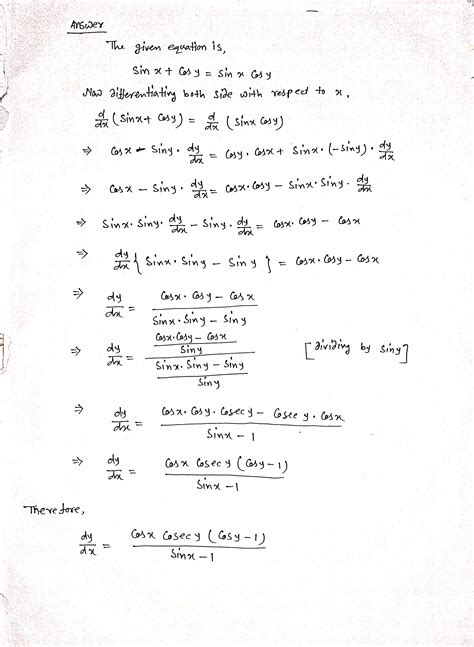 Answer
The given equation is,
Sin x + Cos y = Sin x Cos y
Now differentiating both side with respect to x,
d/dx (Sinx + Cosy) = d/dx (Sinx Cosy)
⇒ Cosx - Siny · dy/dx = Cosy · Cosx + Sinx · (-Siny) · dy/dx
⇒ Cosx - Siny · dy/dx = Cosx · Cosy - Sinx · Siny · dy/dx
⇒ Sinx · Siny · dy/dx - Siny · dy/dx = Cosx · Cosy - Cosx
⇒ dy/dx { Sinx · Siny - Siny } = Cosx · Cosy - Cosx
⇒ dy/dx = (Cosx · Cosy - Cosx) / (Sinx · Siny - Siny)
⇒ dy/dx = ((Cosx · Cosy - Cosx) / Siny) / ((Sinx · Siny - Siny) / Siny) [dividing by Siny]
⇒ dy/dx = (Cosx · Cosy · Cosecy - Cosecy · Cosx) / (Sinx - 1)
⇒ dy/dx = Cosx Cosec y (Cosy - 1) / (Sinx - 1)
Therefore,
dy/dx = Cosx Cosec y (Cosy - 1) / (Sinx - 1)